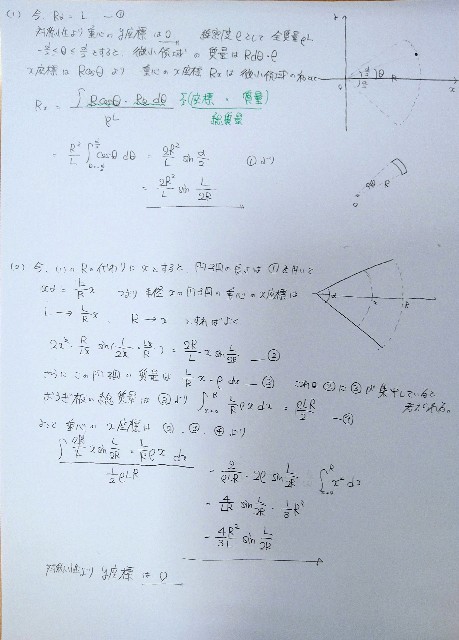 (1) 今、Rα = L ー①
対称性より重心のy座標は0 線密度ρとして全質量ρL
-α/2<θ<α/2とすると、微小領域の質量はRdθ・ρ
x座標はRcosθより 重心のx座標Rxは微小領域の
Rx = ∫Rcosθ・Rρdθ / ρL Σ(座標・質量) / 総質量
= R²/L ∫cosθ dθ = 2R²/L sin α/2 ①より
= 2R²/L sin L/2R
(2) 今、(1)のRの代わりにxとすると、円弧の長さは①を用いて
xα = L/R x つまり半径xの円弧の重心のx座標は
L → L/R x、R → x とすればよく
2x²・R/Lx sin(1/2x・Lx/R) = 2R/L x sin L/2R ー②
さらにこの円弧の質量は L/R x・ρdx ー③ これが②に③が集中していると
考えられる。
おうぎ板の総質量は③より ∫ L/R ρx dx = ρLR/2 ー④
よって重心のx座標は②、③、④より
∫ 2R/L x sin L/2R・L/R ρx dx / ½ρLR
= 2/ρLR・2ρ sin L/2R ∫ x² dx
= 4/LR sin L/2R・1/3 R³
= 4R²/3L sin L/2R
対称性よりy座標は0
x
R
θ
0
α
R